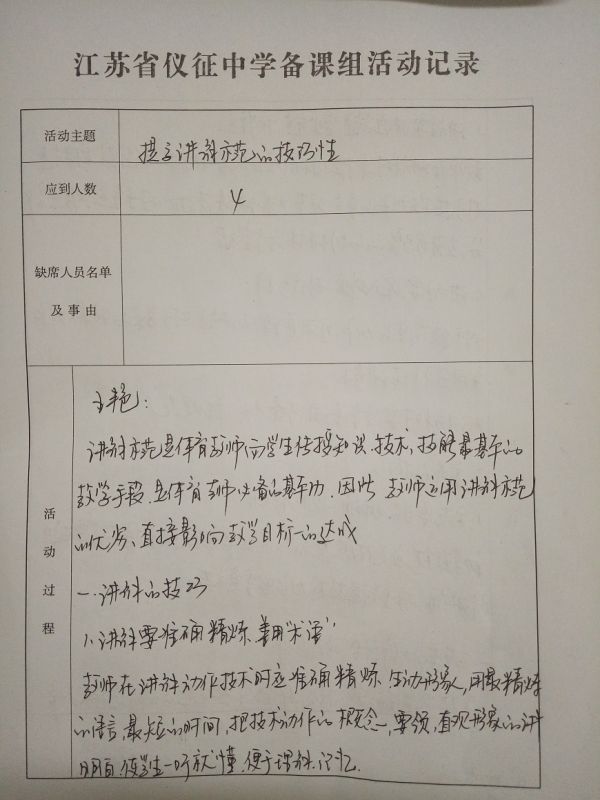 江苏省仪征中学备课组活动记录
活动主题
提高讲解示范的技巧性
应到人数
4
缺席人员名单
及事由
活动过程
讲解示范是体育教师向学生传授知识、技术、技能最基本的
教学手段,是体育教师必备的基本功,因此 教师运用讲解示范
的优劣、直接影响教学目标的达成
一、讲解的技巧
1、讲解要准确精炼、善用“术语”
教师在讲解动作技术时应准确精炼、生动形象,用最精炼
的语言,最短的时间,把技术动作的概念,要领,直观形象的讲
明白,使学生一听就懂,便于理解、记忆.